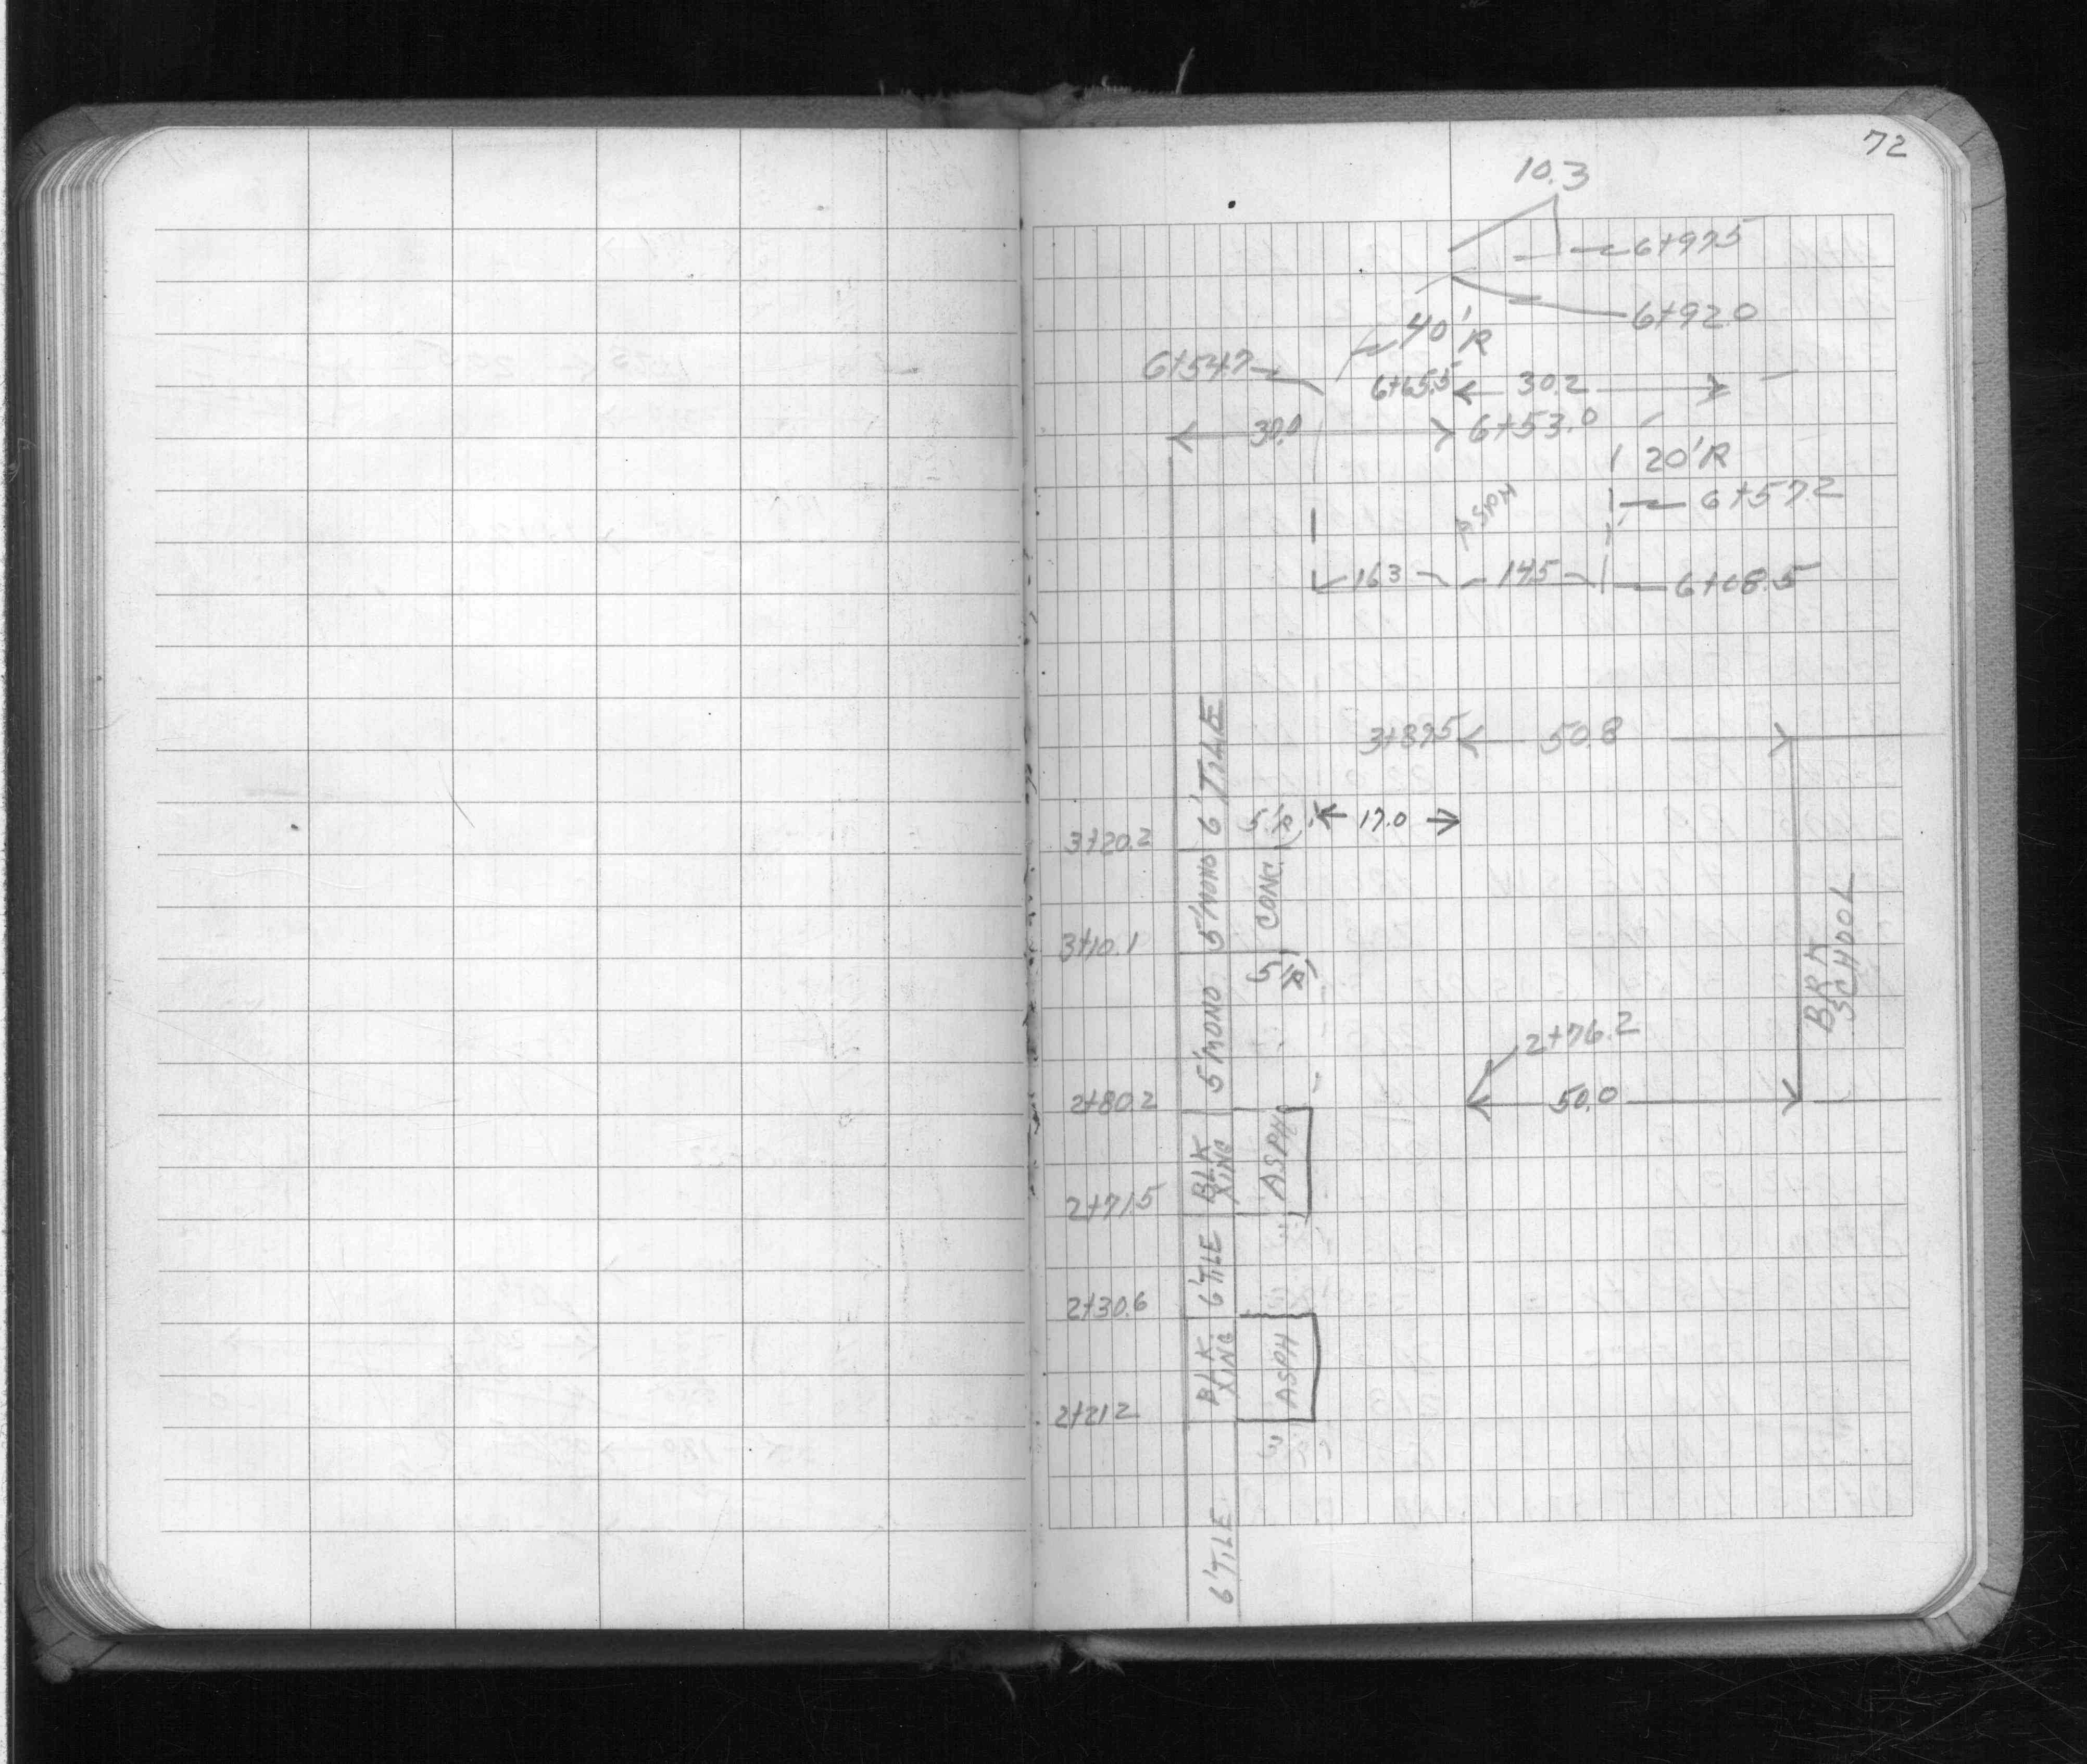 72
10.3
6+97.5
6+92.0
40'R
6+54.7
6+65.5
30.2
30.0
6+53.0
20'R
ASPH
6+57.2
16.3
14.5
6+08.5
3+89.5
50.8
6'TILE
5'R
17.0
3+20.2
5'MONO
CONC.
3+10.1
5'R
5'MONO
BRK
SCHOOL
2+76.2
2+80.2
50.0
BLK
XING
ASPH
2+71.5
6'TILE
2+30.6
BLK
XING
ASPH
2+21.2
3'
6'TILE